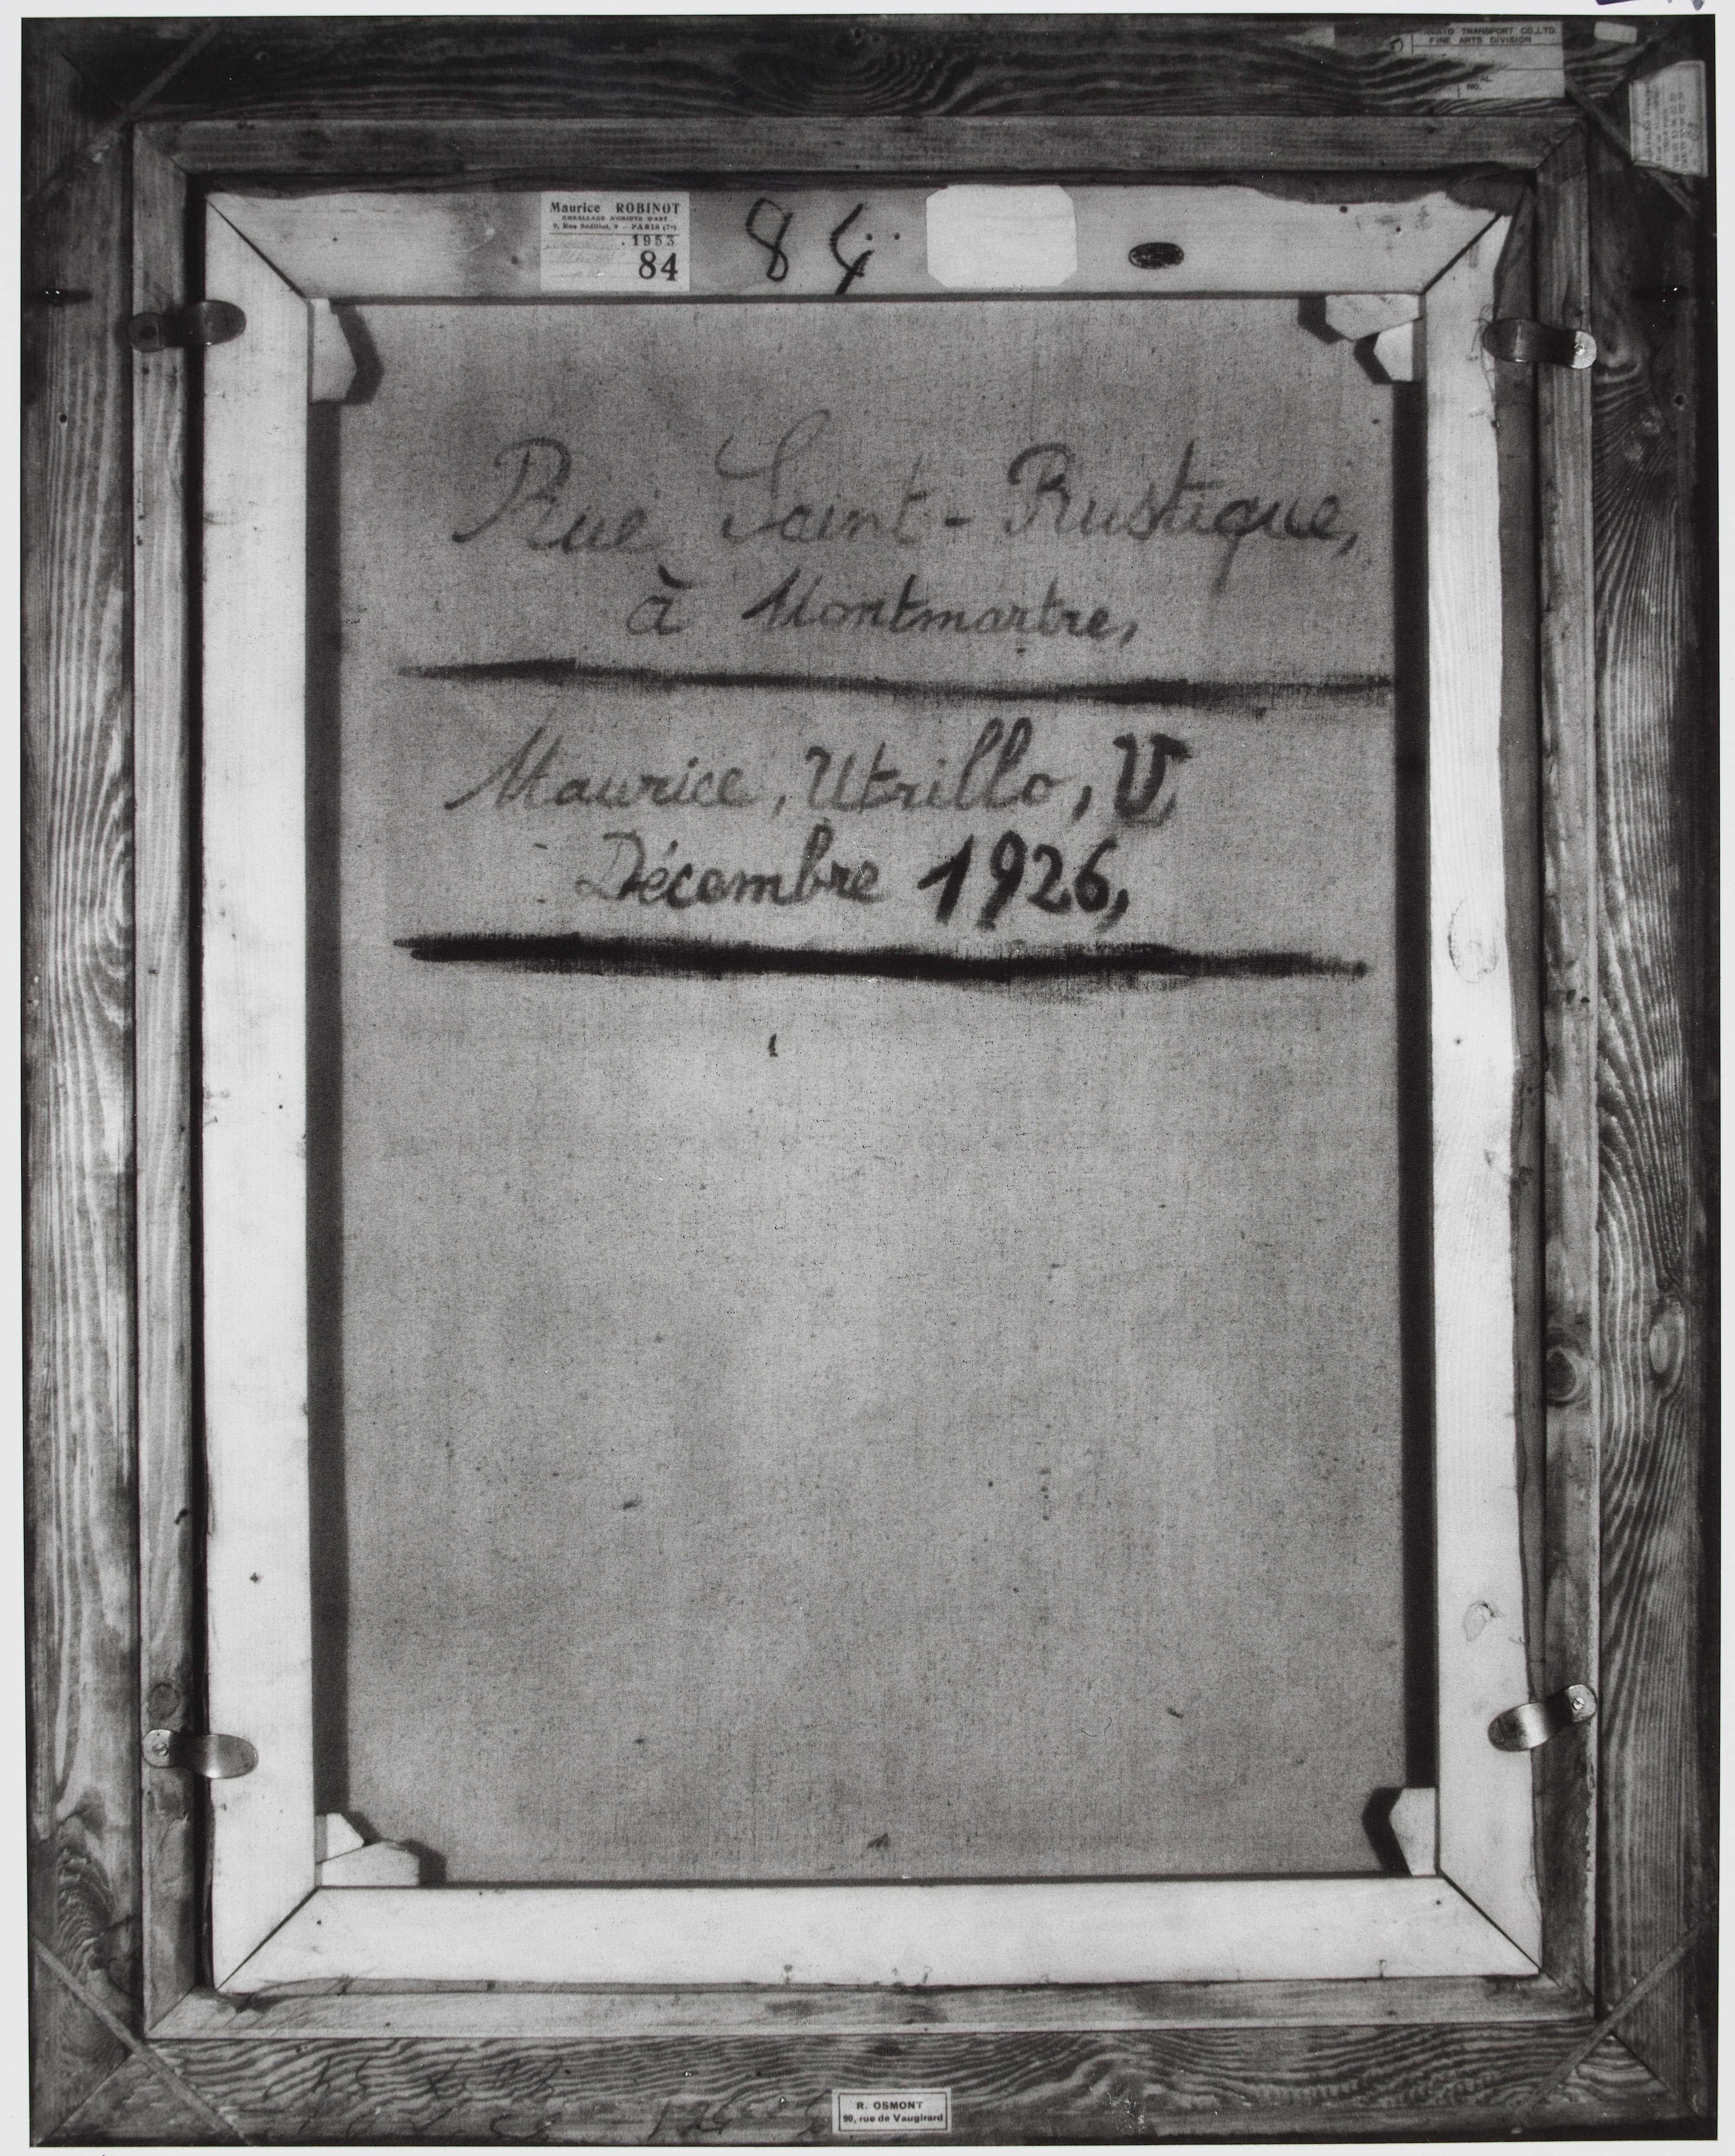 TRANSPORT CO.,LTD.
FINE ARTS DIVISION
NO.
Maurice ROBINOT
EMBALLAGE D'OBJETS D'ART
9, Rue Sédillot, 9 - PARIS (7e)
.1953
84
84
Rue Saint-Rustique,
à Montmartre,
Maurice, Utrillo, V,
Décembre 1926,
R. OSMONT
90, rue de Vaugirard